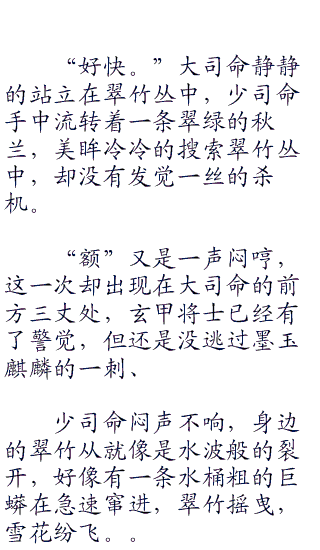 “好快。”大司命静静
的站立在翠竹丛中，少司命
手中流转着一条翠绿的秋
兰，美眸冷冷的搜索翠竹丛
中，却没有发觉一丝的杀
机。
“额”又是一声闷哼，
这一次却出现在大司命的前
方三丈处，玄甲将士已经有
了警觉，但还是没逃过墨玉
麒麟的一刺、
少司命闷声不响，身边
的翠竹从就像是水波般的裂
开，好像有一条水桶粗的巨
蟒在急速窜进，翠竹摇曳，
雪花纷飞。。